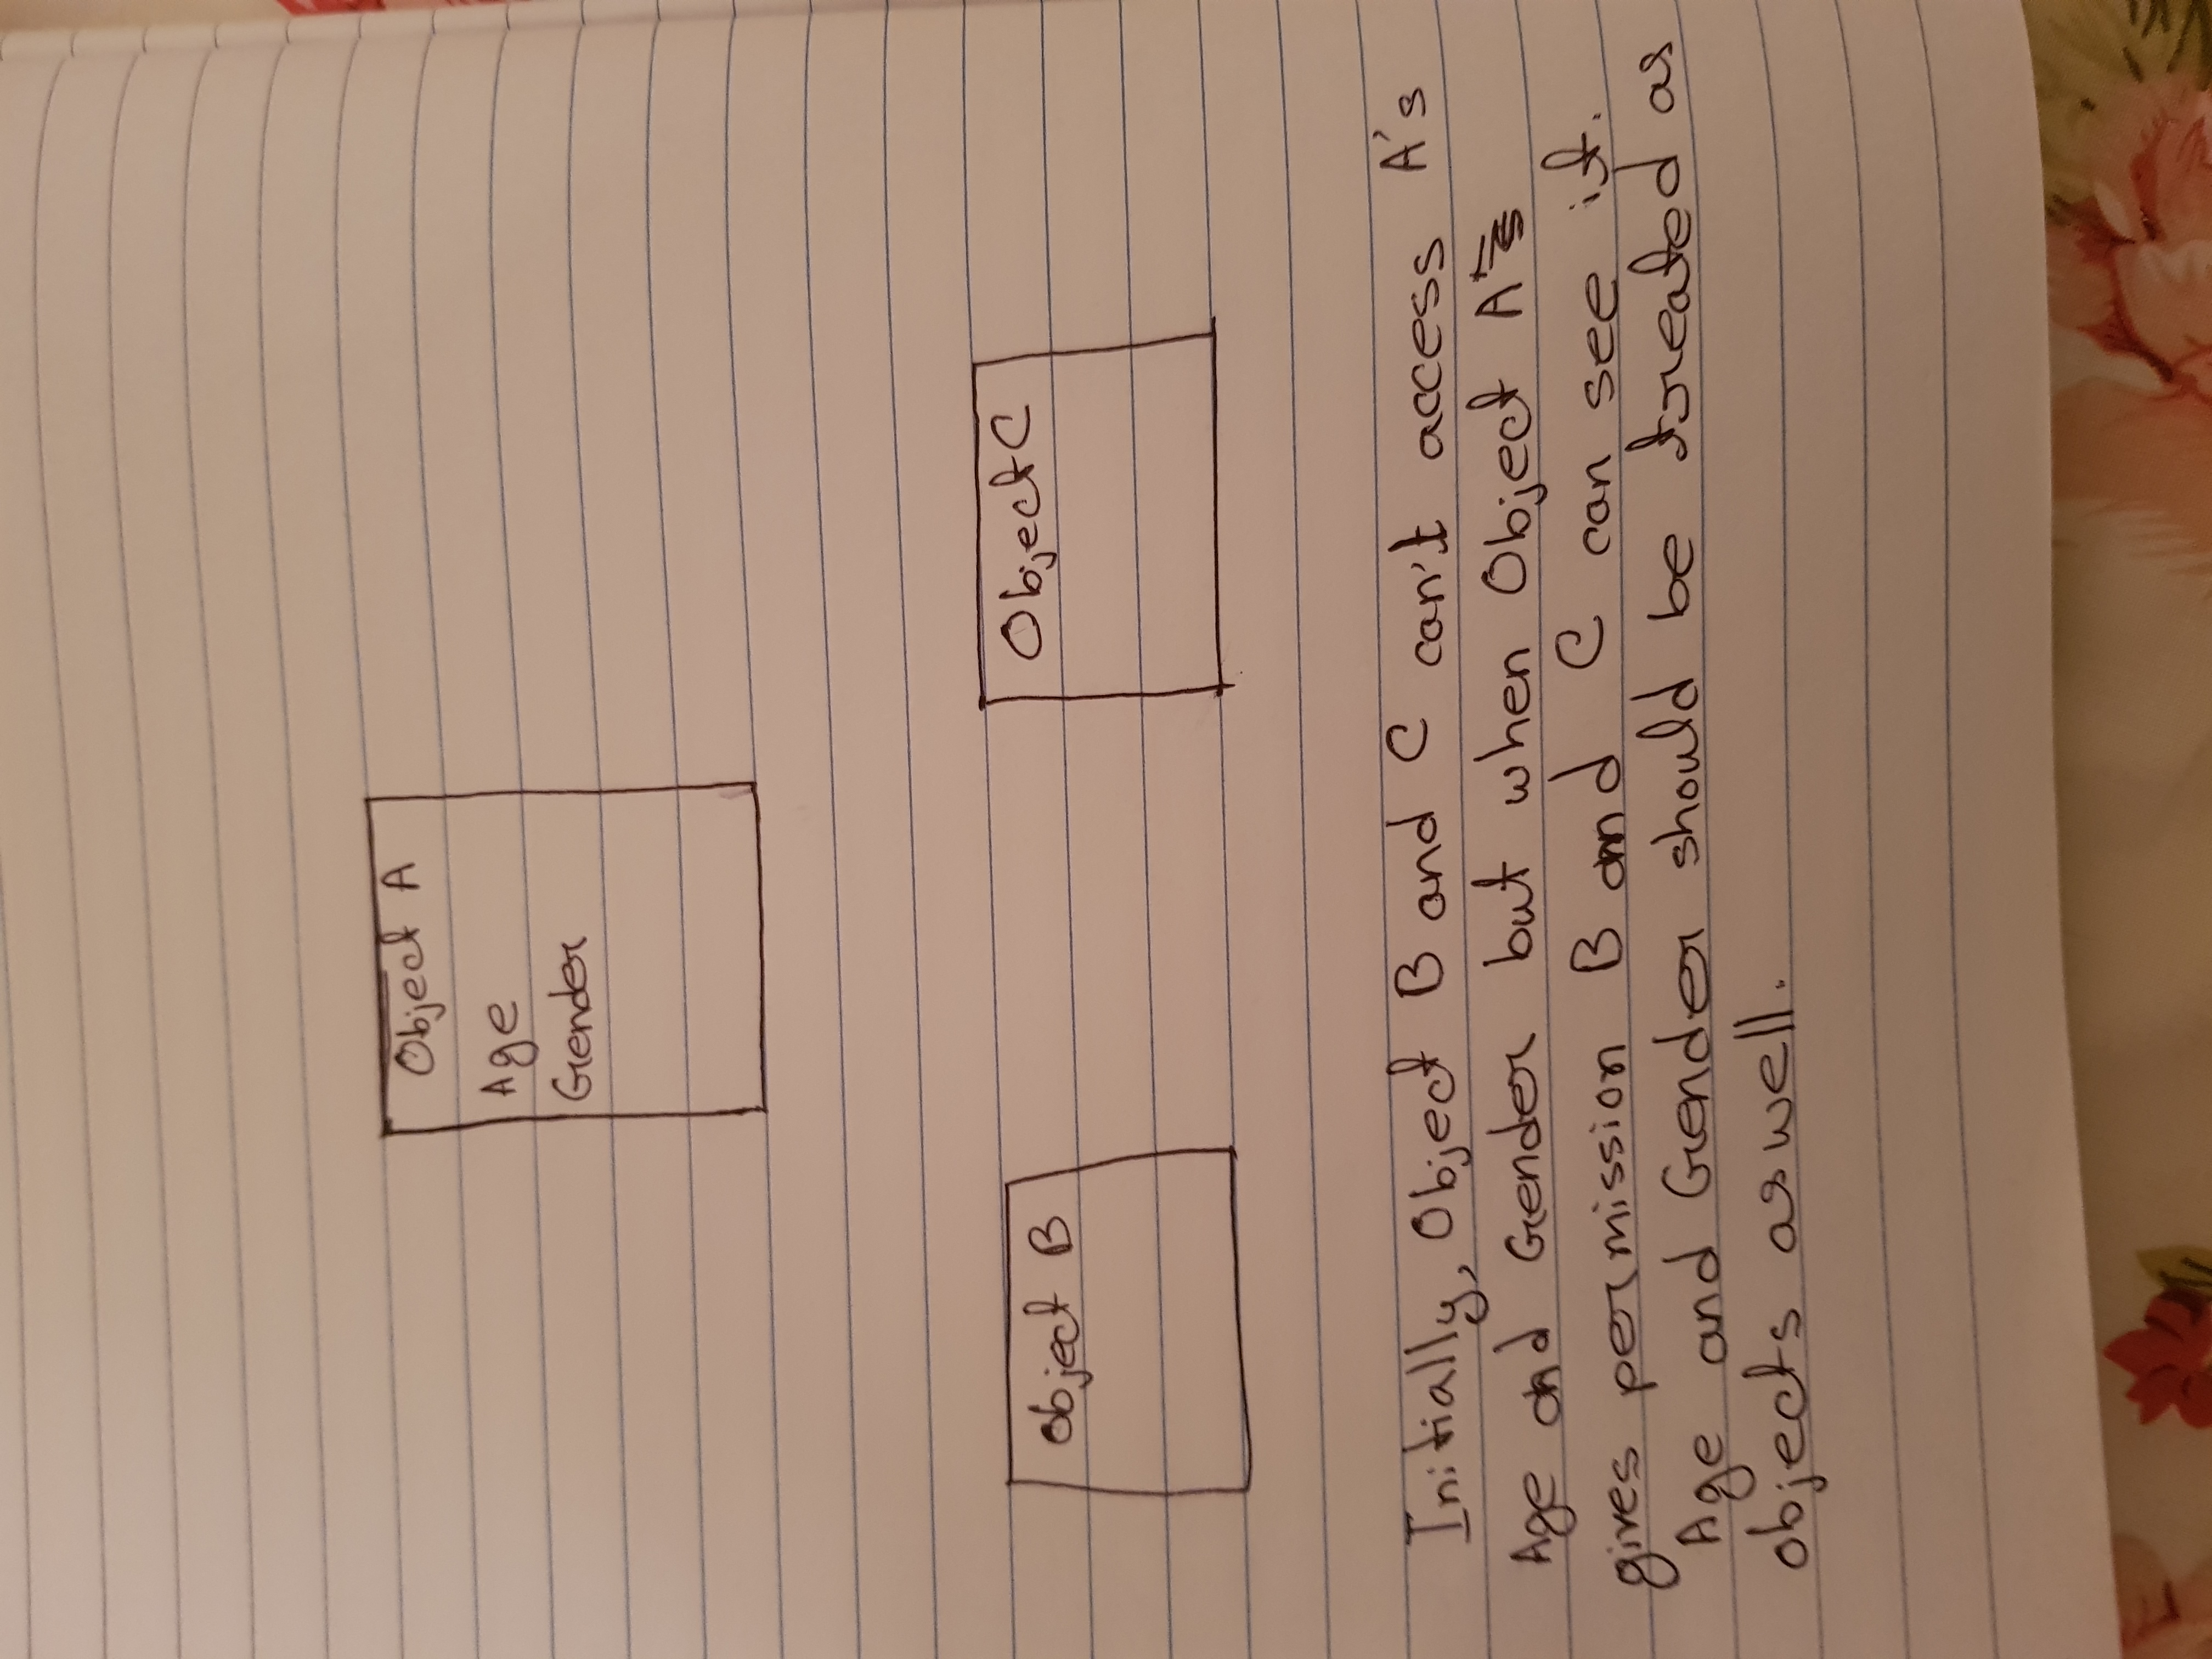 Object A
Age
Gender
Object B
Object C
Initially, Object B and C can't access A's
Age and Gender but when Object A
gives permission B and C can see it.
Age and Gender should be treated as
objects as well.